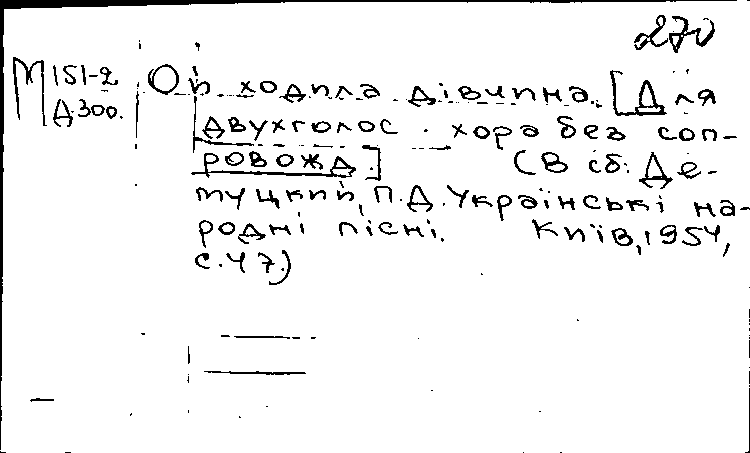 270
М151-2
Д300.
Ой ходила дівчина. [Для
двухголос. хора без соп-
ровожд.] (В сб: Де-
муцкий, П.Д. Українські на-
родні пісні. Київ, 1954,
с.47.)